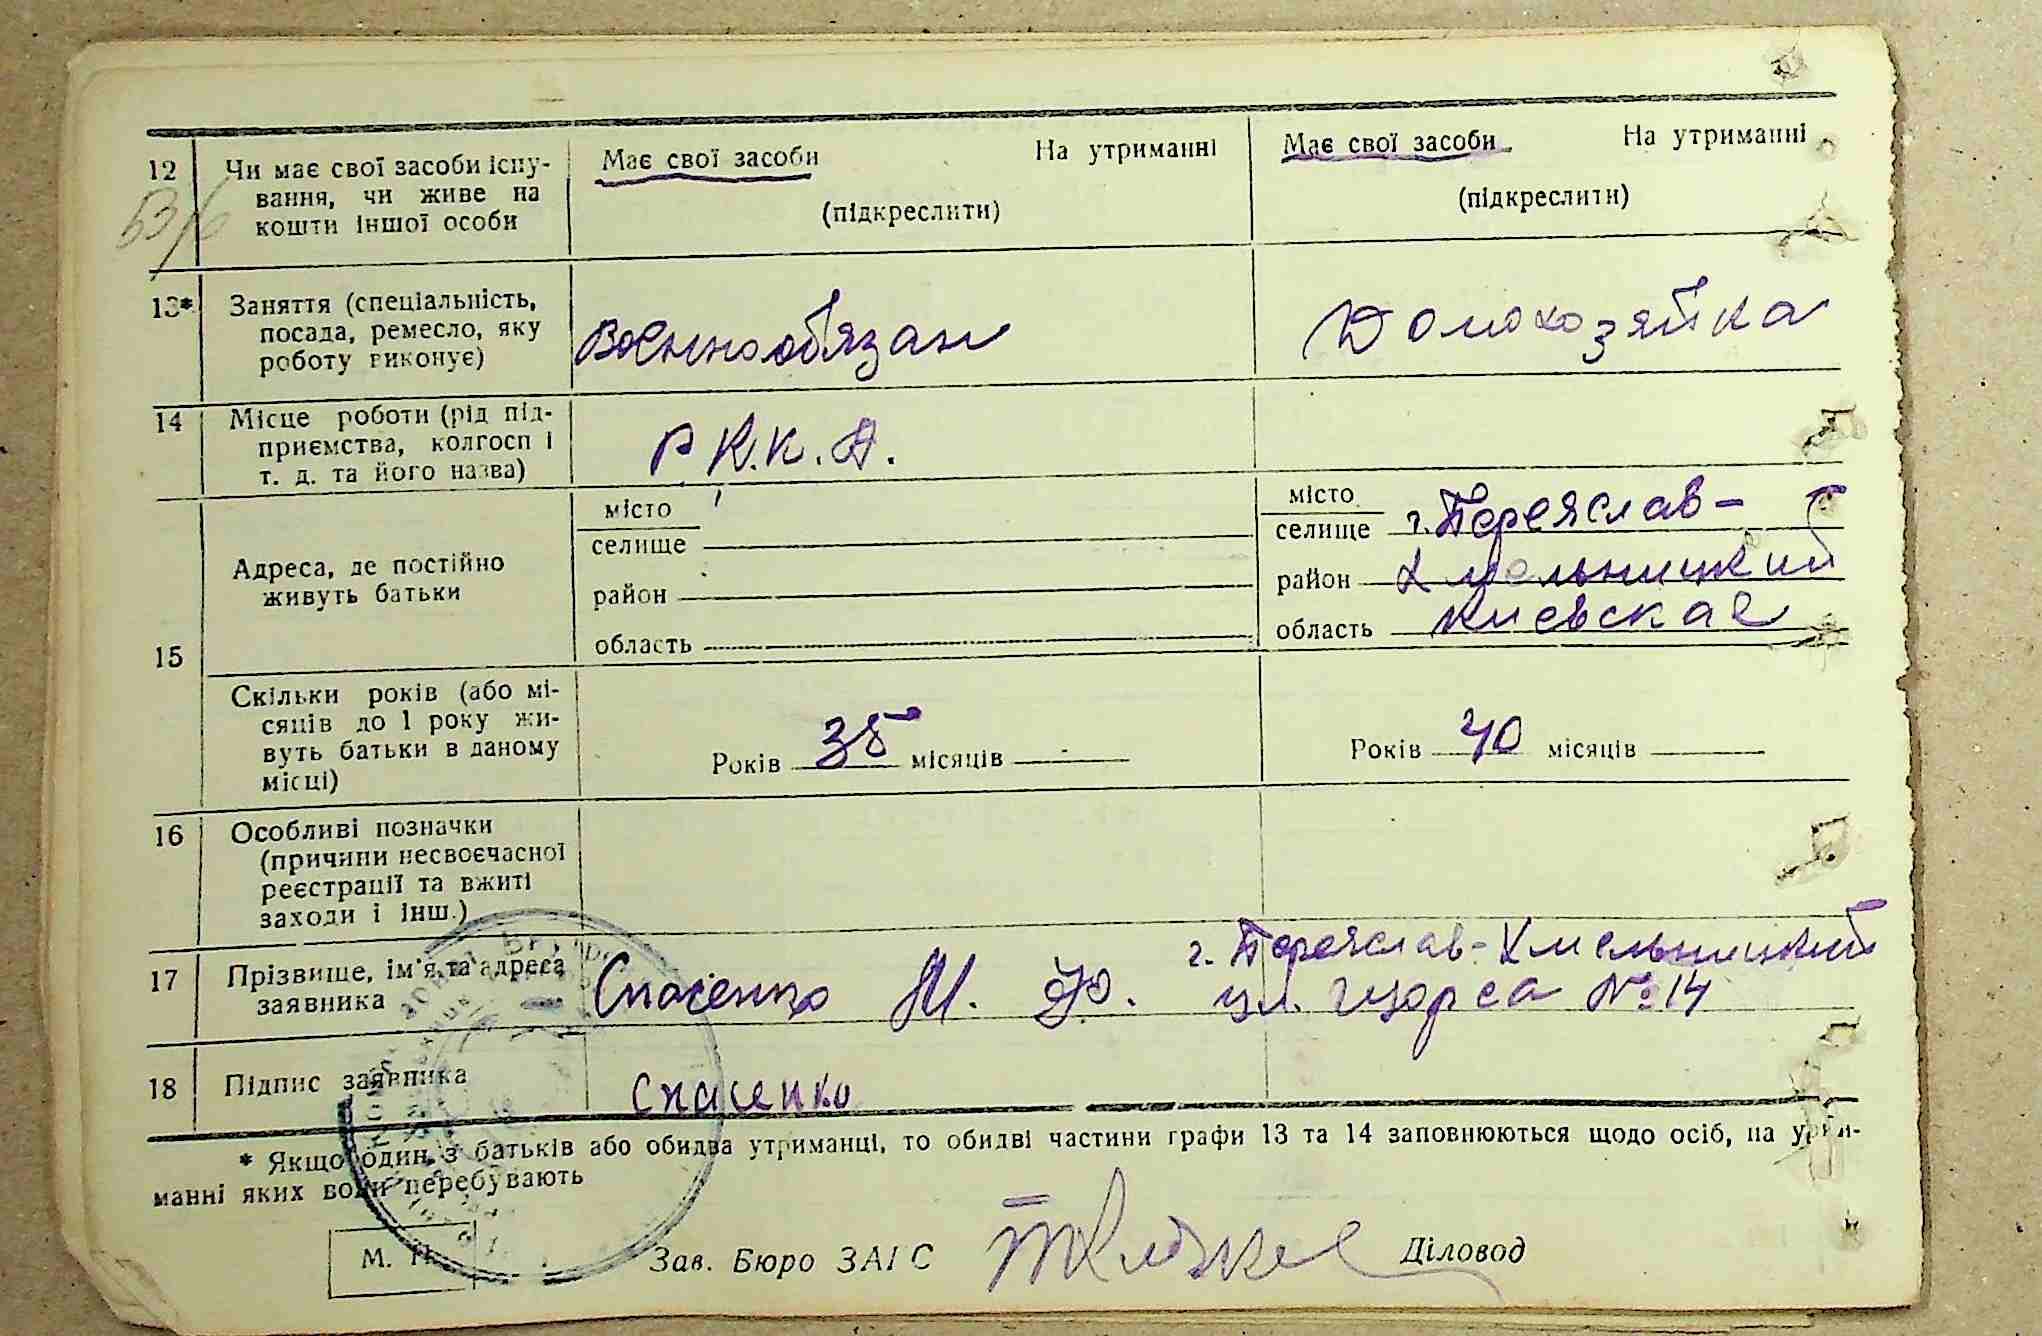 12
Чи має свої засоби існу-
вання, чи живе на
кошти іншої особи
Має свої засоби На утриманні
(підкреслити)
Має свої засоби На утриманні
(підкреслити)
13*
Заняття (спеціальність,
посада, ремесло, яку
роботу виконує)
Военнообязан
Домохозяйка
14
Місце роботи (рід під-
приємства, колгосп і
т. д. та його назва)
Р К.К.А.
15
Адреса, де постійно
живуть батьки
місто
селище
район
область
місто
селище г. Переяслав-
район Хмельницкий
область Киевская
Скільки років (або мі-
сяців до 1 року жи-
вуть батьки в даному
місці)
Років 35 місяців
Років 40 місяців
16
Особливі позначки
(причини несвоєчасної
реєстрації та вжиті
заходи і інш.)
17
Прізвище, ім'я та адреса
заявника
г. Переяслав-Хмельницкий
Спасенко М. Ю. ул. Щорса № 14
18
Підпис заявника
Спасенко
* Якщо один з батьків або обидва утриманці, то обидві частини графи 13 та 14 заповнюються щодо осіб, на утри-
манні яких вони перебувають
М. П.
Зав. Бюро ЗАГС
Діловод